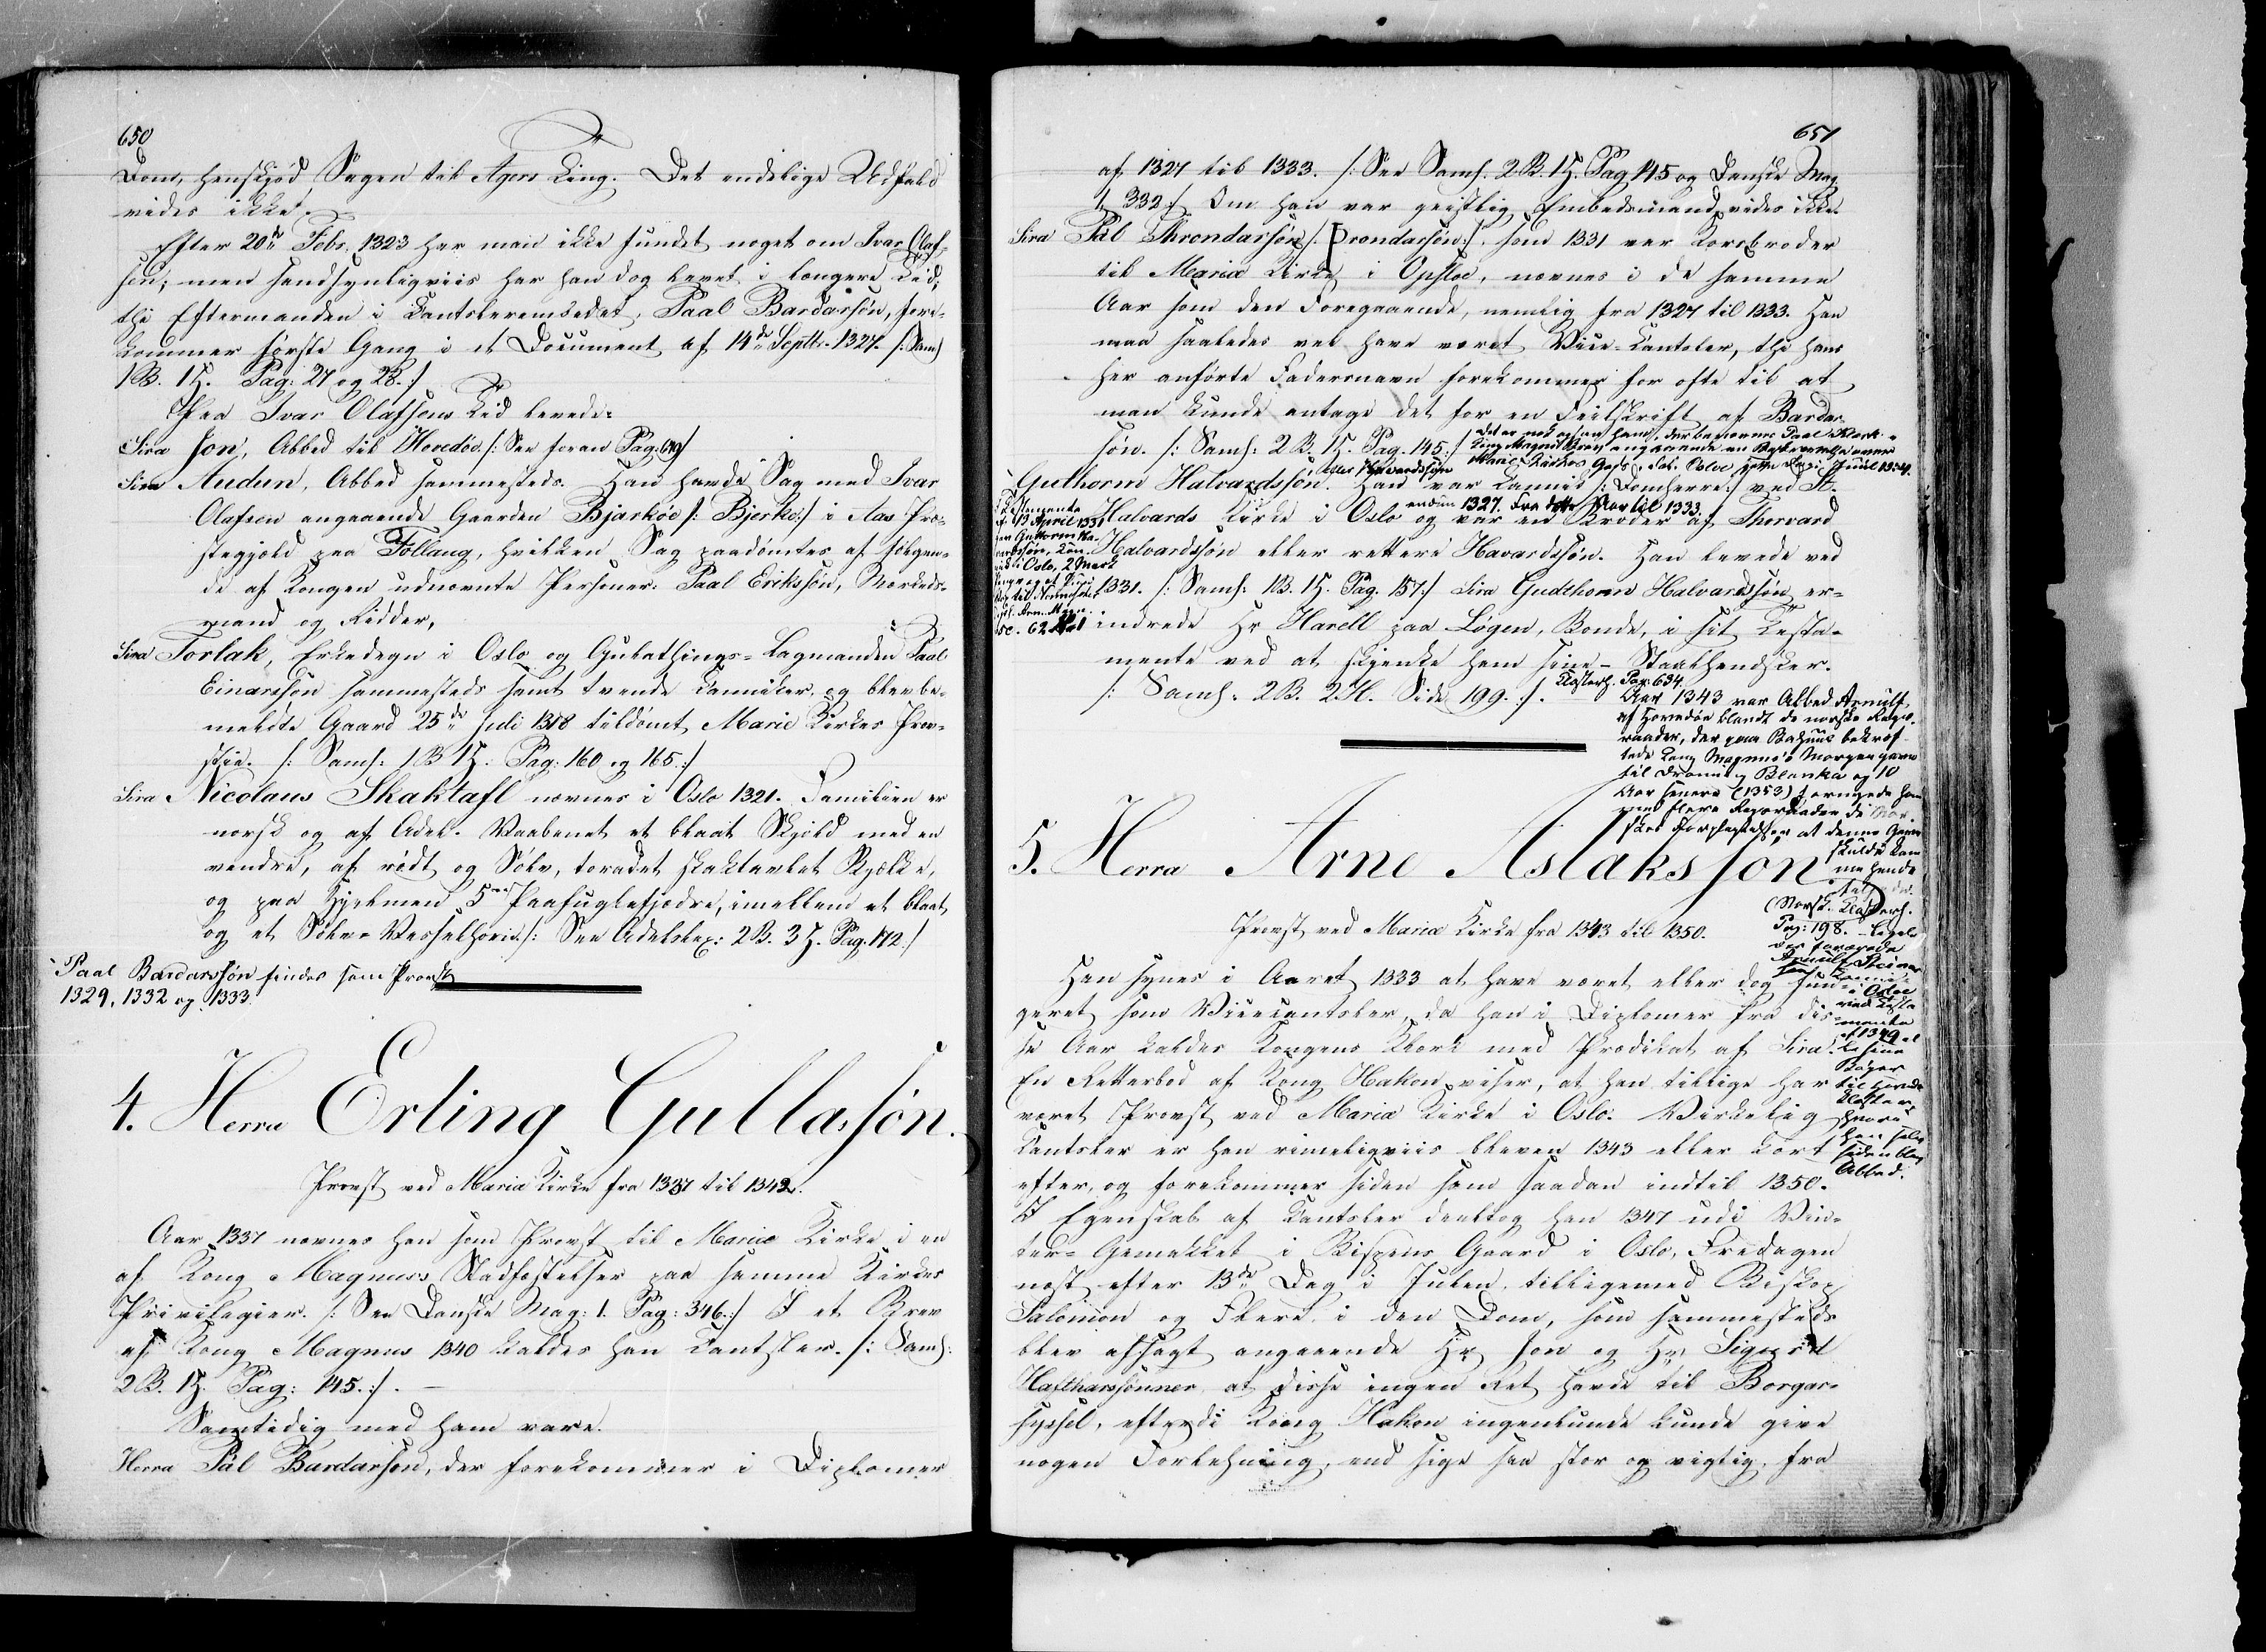 650
Dom, henskjød Sagen til Agers Ting. Det endelige Udfald
vides ikke.
Efter 20de Febr. 1323 har man ikke fundet noget om Ivar Olaf-
sen, men sandsynligviis har han dog levet i længere Tid,
thi Eftermanden i Kantslerembedet, Paal Bardarsøn, fore-
kommer første Gang i et Document af 14de Septbr. 1327. /: Saml.
1 B. 1 H. Pag: 27 og 28. :/
Paa Ivar Olafsens Tid levede:
Sira Jon, Abbed til Hovedø. /: See foran Pag.
Sira Audun, Abbed sammesteds. Han havde Sag med Ivar
Olafsen angaaende Gaarden Bjarkøe /: Bjerke :/ i Aas Præ-
stegjæld paa Follaug, hvilken Sag paadømtes af følgen-
de af Kongen udnævnte Personer. Paal Eriksøn, Merkes-
mand og Ridder,
Sira Torlak, Erkedegn i Oslo og Gulathings-Lagmanden Paal
Einarssøn sammesteds samt tvende Canniker, og blev be-
meldte Gaard 25de Juli 1318 tildømt Marie Kirkes Prov-
stie. /: Saml: 1 B 1 H. Pag: 160 og 165 :/
Sira Nicolaus Skaktafl nævnes i Oslo 1321. Familien er
norsk og af Adel. Vaabenet et blaat Skjold med en
vendre, af rødt og Sølv, toradet skaktavlet Bjælke,
og paa Hjelmen 5 Paafuglefjædre, imellem et blaat
og et Sølv-Vesselhorn. /: See Adelslex: 2 B. 3 H. Pag. 172 :/
Paal Bardarssøn findes som Provst
1329, 1332 og 1333.
4. Herra Erling Gullasøn.
Provst ved Mariæ Kirke fra 1337 til 1342.
Aar 1337 nævnes han som Provst til Mariæ Kirke i en
af Kong Magnus's Stadfæstelser paa samme Kirkes
Privilegier. /: See Danske Mag: 1. Pag: 346. :/ I et Brev
af Kong Magnus 1340 kaldes han Cantsler. /: Saml:
2 B. 1 H. Pag: 145. :/. —
Samtidig med ham vare.
Herra Pál Bardarsøn, der forekommer i Diplomer
651
af 1327 til 1333. /: See Saml. 2 B. 1 H. Pag 145 og Danske Mag
1, 332 :/ Om han var geistlig Embedsmand vides ikke.
Sira Pál Throndarsøn /: Þrondarsøn :/, som 1331 var Korsbroder
til Mariæ Kirke i Opsloe, nævnes i de samme
Aar som den Foregaaende, nemlig fra 1327 til 1333. Han
maa saaledes vel have været Vice-Cantsler, thi hans
her anførte Fadersnavn forekommer for ofte til at
man kunde antage det for en Feilskrift af Bardar-
søn. /: Saml: 2 B. 1 H. Pag. 145 :/
Det er nok ogsaa ham, der benævnes Paal Klerk
Kong Magnus's Brev angaaende en
Marie Kirkes Gods, dat.
Guthorm Halvardsøn. Han var Kannik /: Domherre :/ ved St.
eller Havardssøn
endnu 1327. Fra dette Aar til 1333.
Halvards Kirke i Oslo og var en Broder af Thorvard
Halvardsøn eller rettere Havardssøn. Han levede ved
1331. /: Saml: 1 B. 1 H. Pag. 157 :/ Sira Gudthorm Halvardsøn er-
indrede Hr Harell paa Løgen, Bonde, i sit Testa-
mente ved at skjenke ham sine Staalhandsker.
/: Saml: 2 B. 2 H. Side 199. :/.
Testamente
af 13 April 1331
Oslo, 2 Mark
Klosterh. Pag: 634.
Aar 1343 var Abbed Arnulf
af Hovedøe blandt de norske Rigs-
raader, der paa Bahuus bekræf-
tede Kong Magnus's Morgengave
til Dronning Blanka og 10
Aar senere (1353)
med flere Rigsraader de
at denne Gave
skulde kom
me hende
(Norsk. Klosterh.
Pag: 198. –
Arnulf
i Osloe
ved Testa
mente
af 1349
sine
Bøger
til Hovedø
Kloster,
hvori
han selv
siden blev
Abbed.
5. Herra Arne Aslaksson.
Provst ved Mariæ Kirke fra 1343 til 1350.
Han synes i Aaret 1333 at have været eller dog fun-
geret som Vicecantsler, da han i Diplomer fra dis-
se Aar kaldes Kongens Klerk med Prædikat af Sira.
En Retterbod af Kong Hakon viser, at han tillige har
været Provst ved Mariæ Kirke i Oslo. Virkelig
Cantsler er han rimeligviis bleven 1343 eller kort
efter, og forekommer siden som saadan indtil 1350.
I Egenskab af Cantsler deeltog han 1347 udi Vin-
ter-Gemakket i Bispens Gaard i Oslo, Fredagen
næst efter 13de Dag i Julen tilligemed Biskop
Salomon og Flere i den Dom, som sammesteds
blev afsagt angaaende Hr Jon og Hr Sigurd
Hafthorssønner, at disse ingen Ret havde til Borgar-
syssel, efterdi Kong Hakon ingenlunde kunde give
nogen Forlehning, end sige saa stor og vigtig, fra